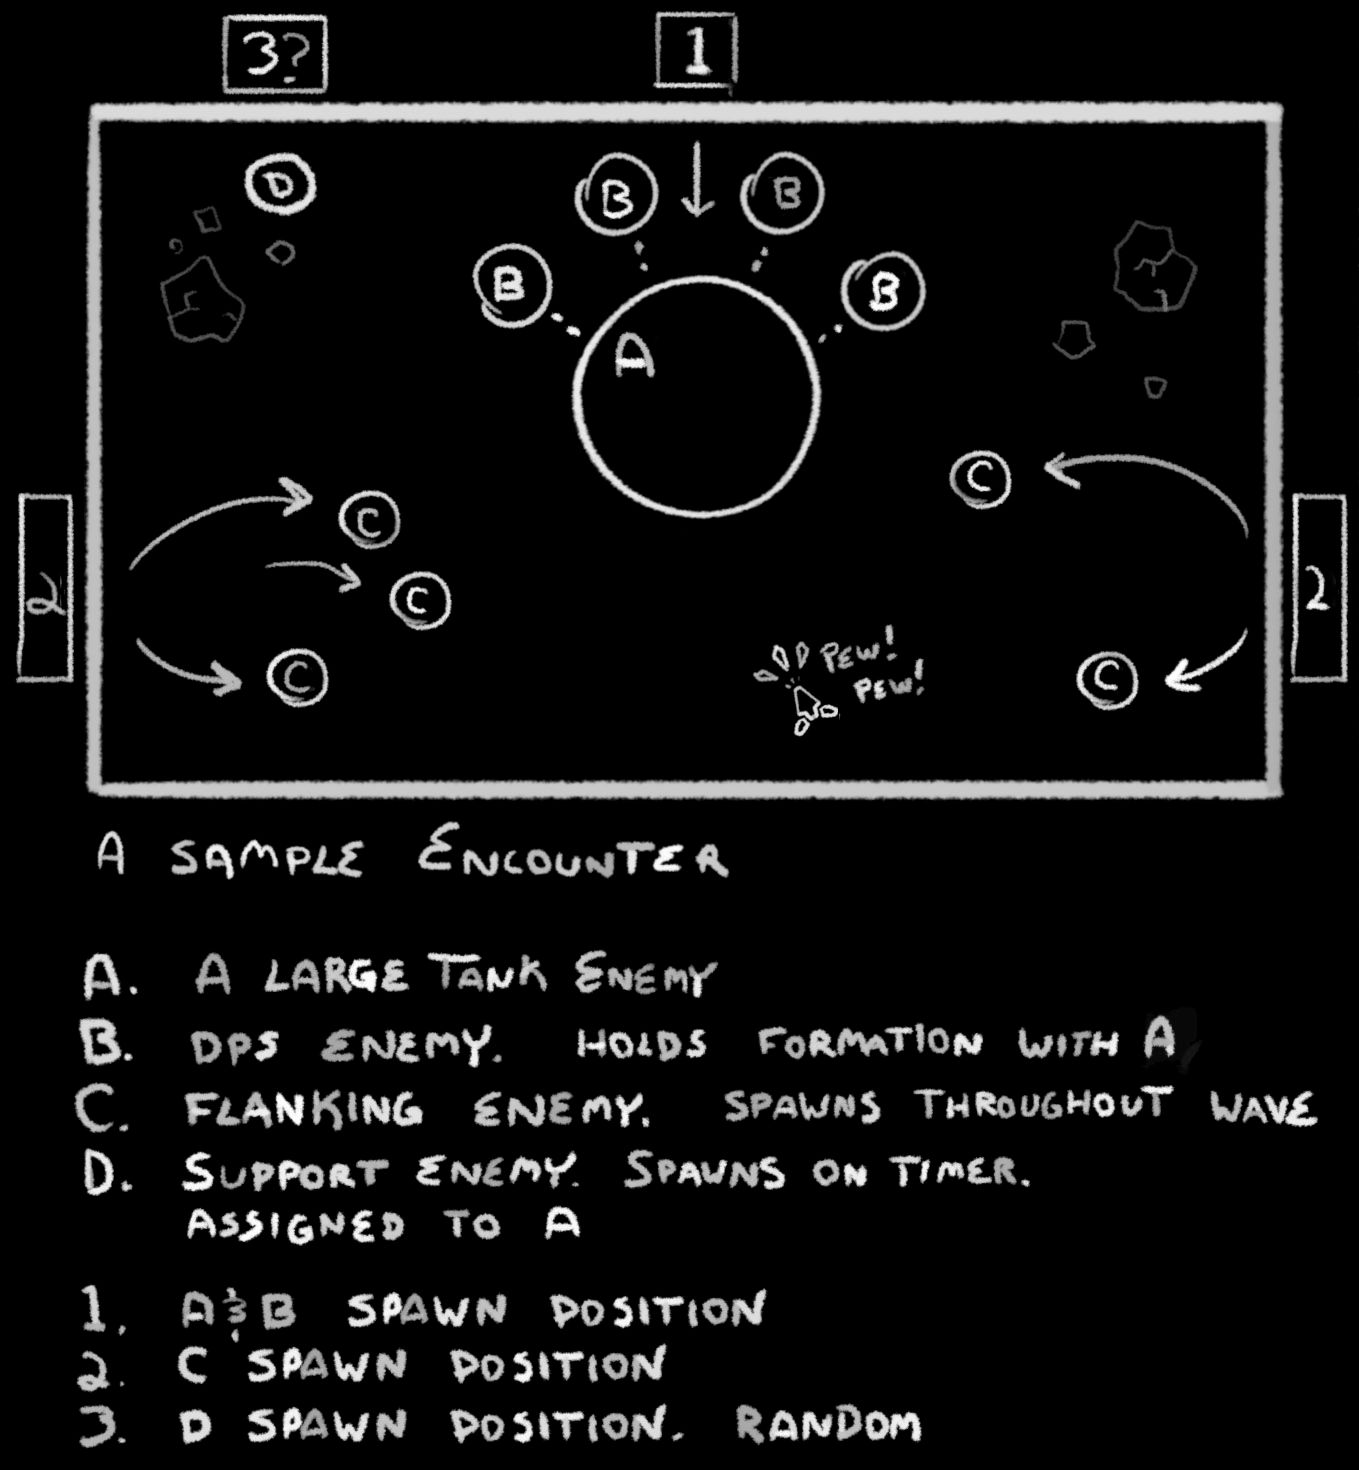 3?
1
D
B
B
B
B
A
C
C
C
2
2
PEW!
PEW!
C
C
A SAMPLE ENCOUNTER
A. A LARGE TANK ENEMY
B. DPS ENEMY. HOLDS FORMATION WITH A
C. FLANKING ENEMY. SPAWNS THROUGHOUT WAVE
D. SUPPORT ENEMY. SPAWNS ON TIMER.
ASSIGNED TO A
1. A & B SPAWN POSITION
2. C SPAWN POSITION
3. D SPAWN POSITION. RANDOM